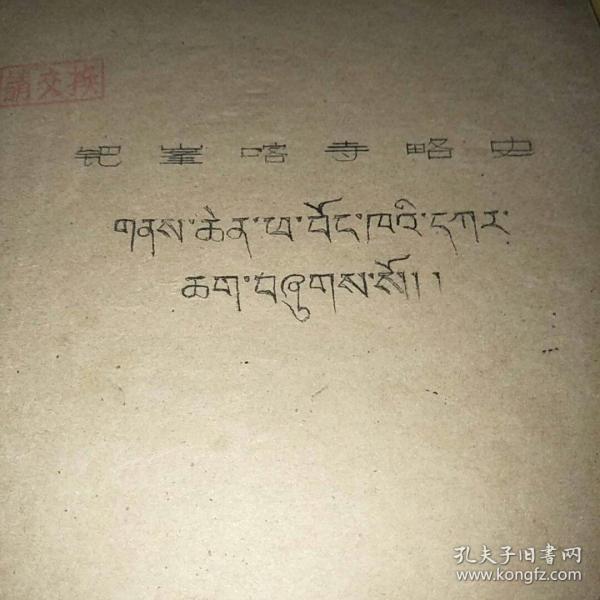 請交换
钯峯喀寺略史
གནས་ཆེན་ཕ་བོང་ཁའི་དཀར་
ཆག་བཞུགས་སོ།།
孔夫子旧书网
www.kongfz.com